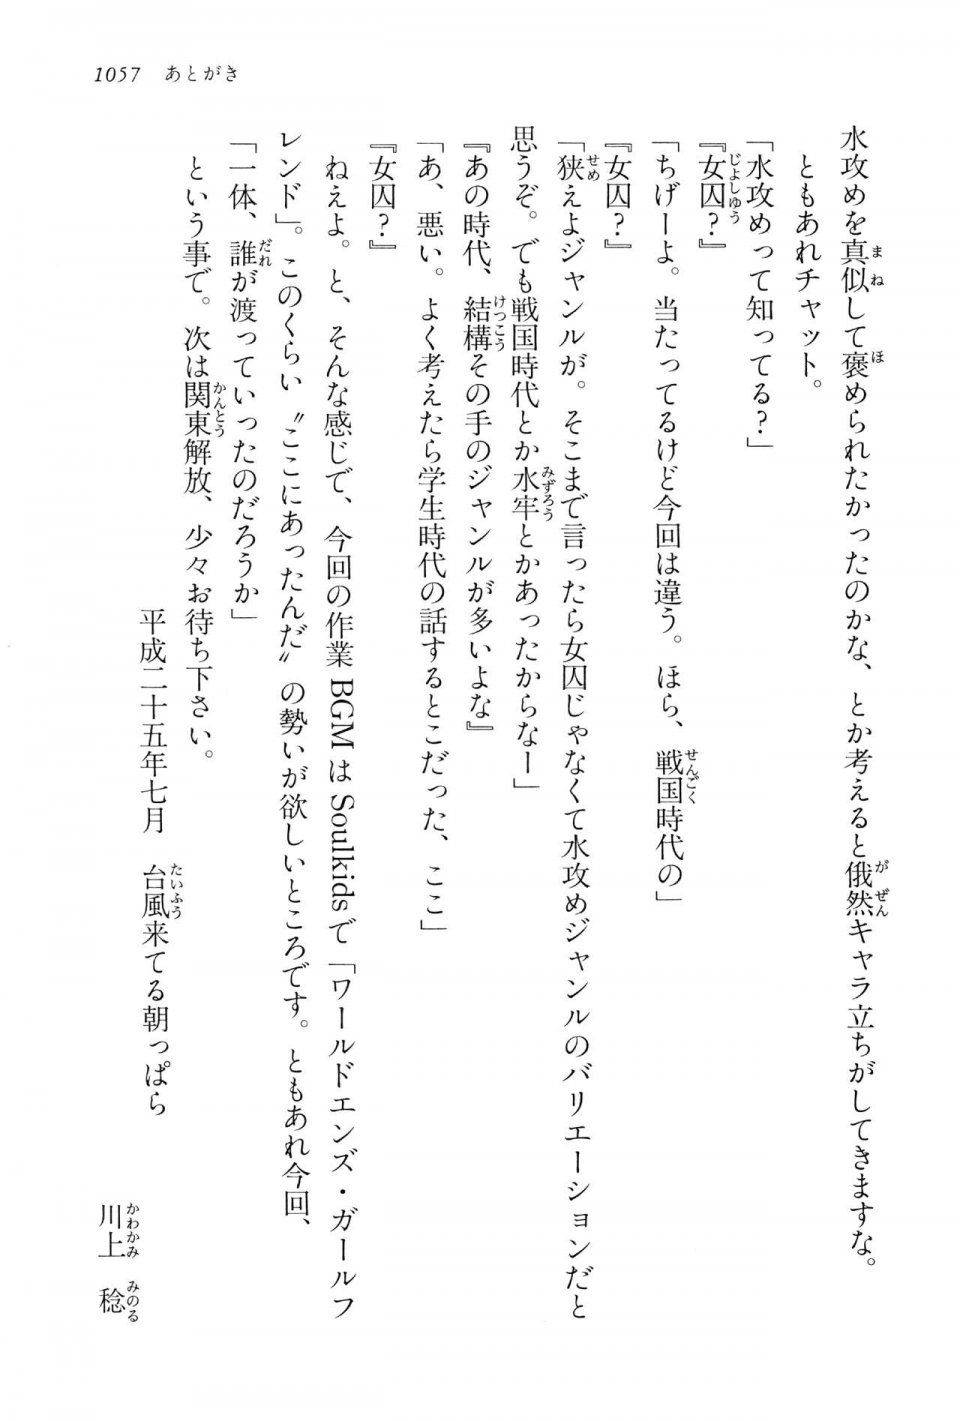 1057 あとがき
水攻めを真似して褒められたかったのかな、とか考えると俄然キャラ立ちがしてきますな。
ともあれチャット。
「水攻めって知ってる？」
『女囚？』
「ちげーよ。当たってるけど今回は違う。ほら、戦国時代の」
『女囚？』
「狭えよジャンルが。そこまで言ったら女囚じゃなくて水攻めジャンルのバリエーションだと
思うぞ。でも戦国時代とか水牢とかあったからなー」
『あの時代、結構その手のジャンルが多いよな』
「あ、悪い。よく考えたら学生時代の話するとこだった、ここ」
『女囚？』
ねえよ。と、そんな感じで、今回の作業BGMはSoulkidsで「ワールドエンズ・ガールフ
レンド」。このくらい〝ここにあったんだ〟の勢いが欲しいところです。ともあれ今回、
「一体、誰が渡っていったのだろうか」
という事で。次は関東解放、少々お待ち下さい。
平成二十五年七月　台風来てる朝っぱら
川上　稔